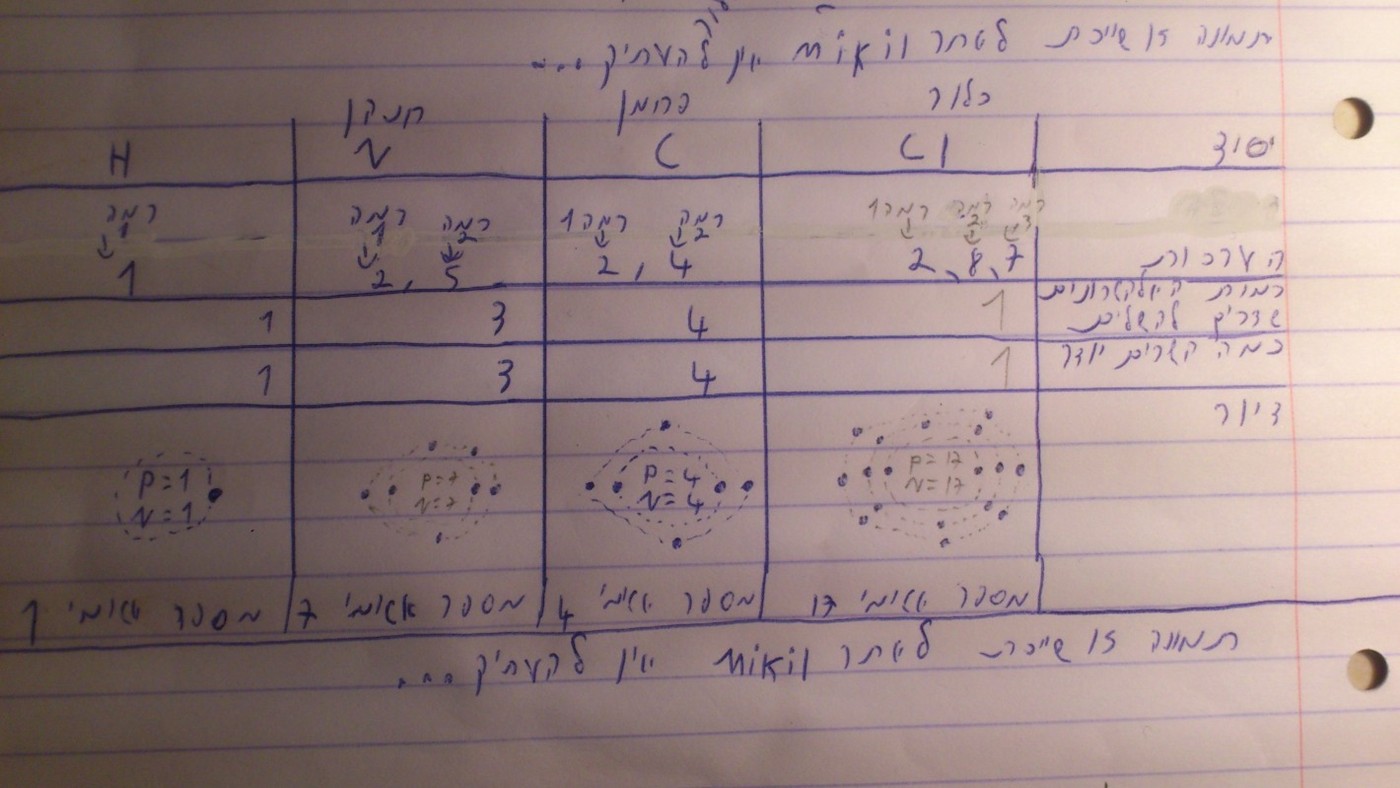 תמונה זו שייכת לאתר mikil אין להעתיק...
כלור פחמן חנקן
יסוד Cl C N H
רמה 1 רמה 2 רמה 3 רמה 1 רמה 2 רמה 1 רמה 2 רמה 1
הערכות 2, 8, 7 2, 4 2, 5 1
כמות האלקטרונים
שצריך להשלים 1 4 3 1
כמה קשרים יוצר 1 4 3 1
ציור
P=17 P=4 P=7 P=1
N=17 N=4 N=7 N=1
מספר אטומי 17 מספר אטומי 4 מספר אטומי 7 מספר אטומי 1
תמונה זו שייכת לאתר mikil אין להעתיק...